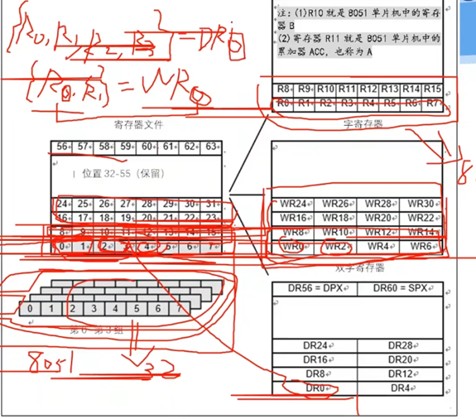 注：(1)R10 就是 8051 单片机中的寄存
器 B
(2)寄存器 R11 就是 8051 单片机中的
累加器 ACC，也称为 A
{R0, R1, R2, R3} = DR0
{R0, R1} = WR0
R8 R9 R10 R11 R12 R13 R14 R15
R0 R1 R2 R3 R4 R5 R6 R7
寄存器文件
字寄存器
56 57 58 59 60 61 62 63
位置 32-55（保留）
24 25 26 27 28 29 30 31
16 17 18 19 20 21 22 23
8 9 10 11 12 13 14 15
0 1 2 3 4 5 6 7
8
WR24 WR26 WR28 WR30
WR16 WR18 WR20 WR22
WR8 WR10 WR12 WR14
WR0 WR2 WR4 WR6
双字寄存器
0 1 2 3 4 5 6 7
8051
32
DR56 = DPX DR60 = SPX
DR24 DR28
DR16 DR20
DR8 DR12
DR0 DR4